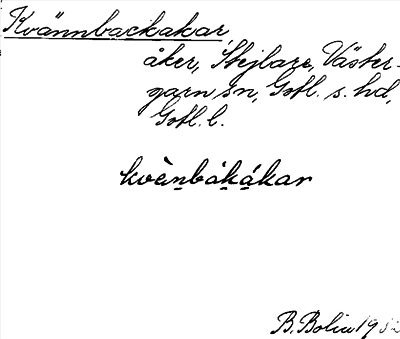 Kvännbackakar,
åker, Stejlare, Väster-
garn sn, Gotl. s. hd,
Gotl. l.
kvèn̠bák̠ák̠ar
B. Bolin 1932